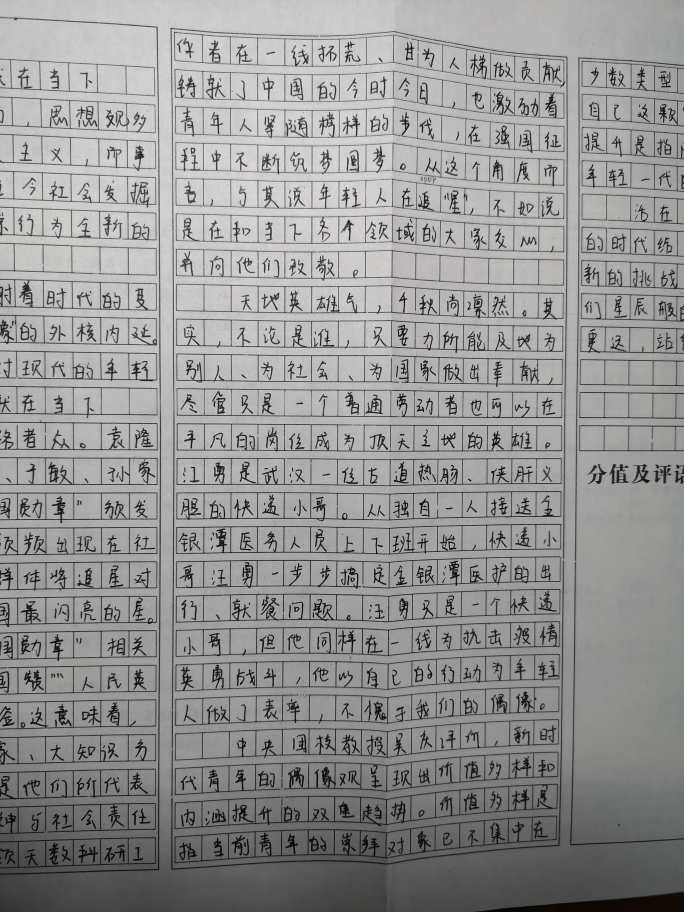 在当下
，思想观多
主义，而事
今社会发掘
行为全新的
时着时代的变
像"的外核内延。
对现代的年轻
状在当下
者众。袁隆
、于敏、孙家
国勋章"颁发
频频出现在社
群体将追星对
国最闪亮的星。
国勋章"相关
人民英
金。这意味着，
家、大知识分
是他们所代表
神与社会责任
航天数科研工
作者在一线拓荒、甘为人梯做贡献,
铸就了中国的今时今日，也激励着
青年人紧随榜样的步伐，在强国征
程中不断筑梦圆梦。从这个角度而
言，与其说年轻人在追"星"，不如说
是在和当下各个领域的大家交心，
并向他们致敬。
天地英雄气，千秋尚凛然。其
实，不论是谁，只要力所能及地为
别人、为社会、为国家做出奉献，
尽管只是一个普通劳动者也可以在
平凡的岗位成为顶天立地的英雄。
汪勇是武汉一位古道热肠、侠肝义
胆的快递小哥。从独自一人接送金
银潭医务人员上下班开始，快递小
哥汪勇一步步搞定金银潭医护的出
行、就餐问题。汪勇只是一个快递
小哥，但他同样在一线为抗击疫情
英勇战斗，他以自己的行动为年轻
人做了表率，不愧于我们的"偶像"。
中央团校教授吴庆评价，新时
代青年的偶像观呈现出价值多样和
内涵提升的双重趋势。价值多样是
指当前青年的崇拜对象已不集中在
少数类型
自己这颗"
提升是指
年轻一代
活在
的时代给
新的挑战
们星辰般的
更远，站
分值及评语